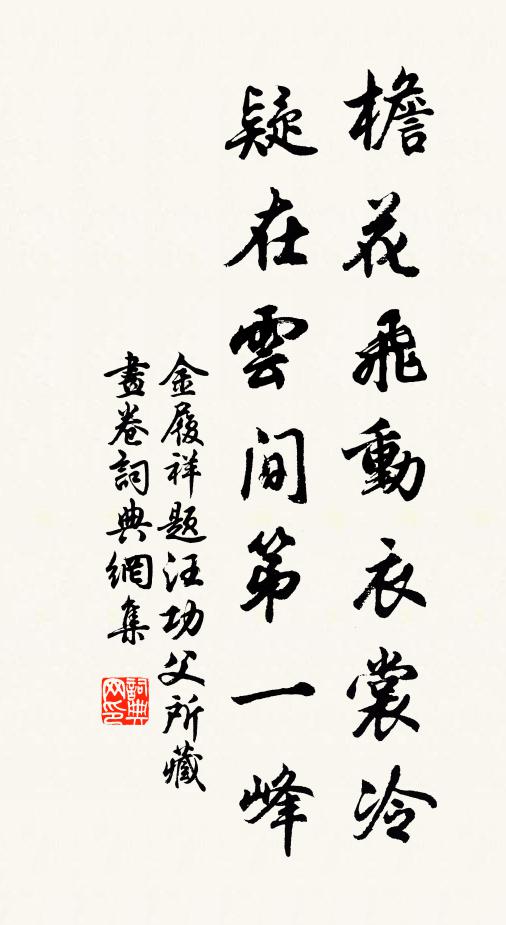 檐花飛動衣裳冷
疑在雲間第一峰
金履祥題汪功父所藏
畫卷詞典網集
詞典网印